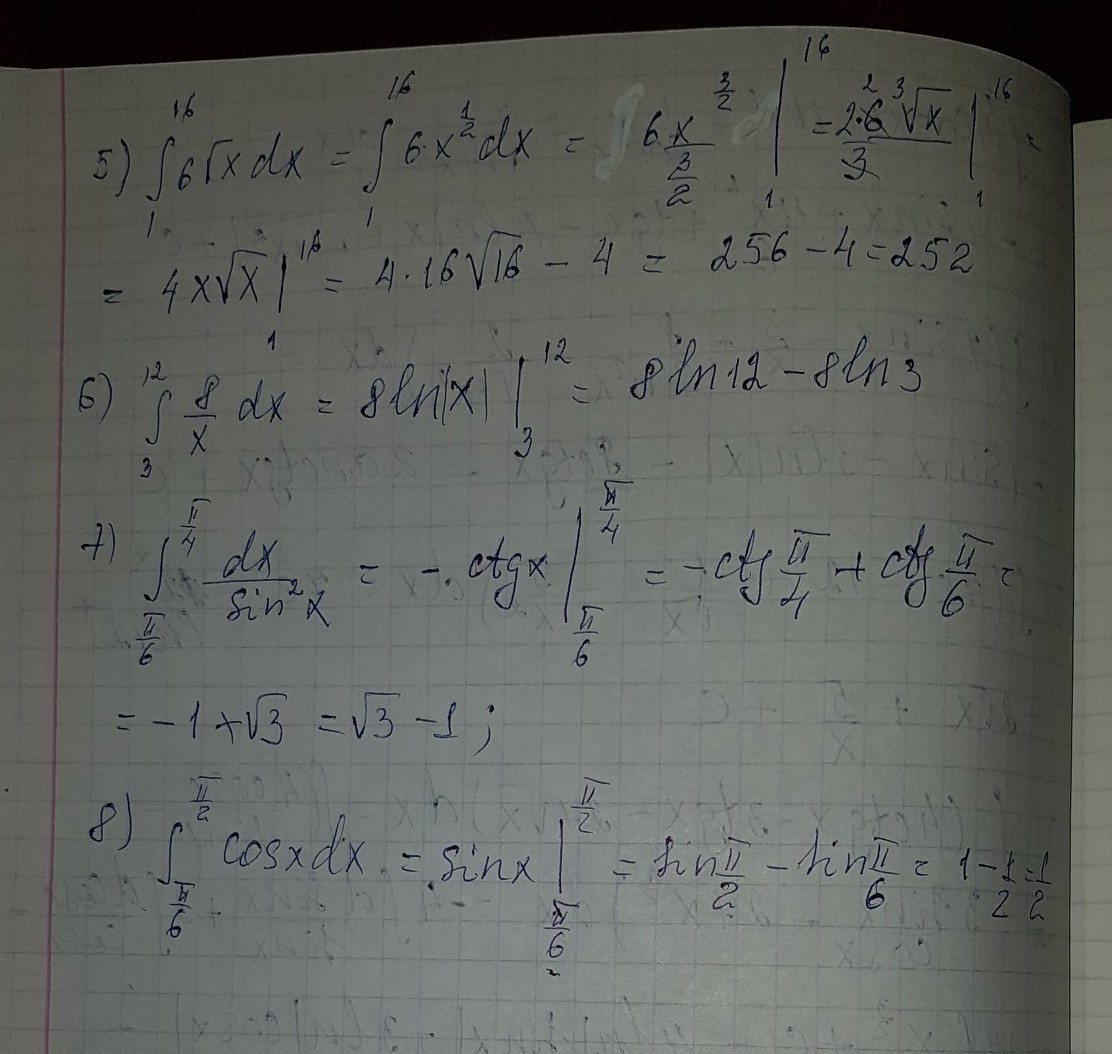 5) ∫₁¹⁶ 6√x dx = ∫₁¹⁶ 6·x^(1/2) dx = 6x^(3/2)/(3/2) |₁¹⁶ = 2·6 ³√x / 3 |₁¹⁶ =
= 4x√x |₁¹⁶ = 4·16√16 − 4 = 256 − 4 = 252
6) ∫₃¹² 8/x dx = 8ln|x| |₃¹² = 8ln12 − 8ln3
7) ∫_(π/6)^(π/4) dx/sin²x = −ctgx |_(π/6)^(π/4) = −ctg π/4 + ctg π/6 =
= −1 + √3 = √3 − 1;
8) ∫_(π/6)^(π/2) cosxdx = sinx |_(π/6)^(π/2) = sin π/2 − sin π/6 = 1 − 1/2 = 1/2